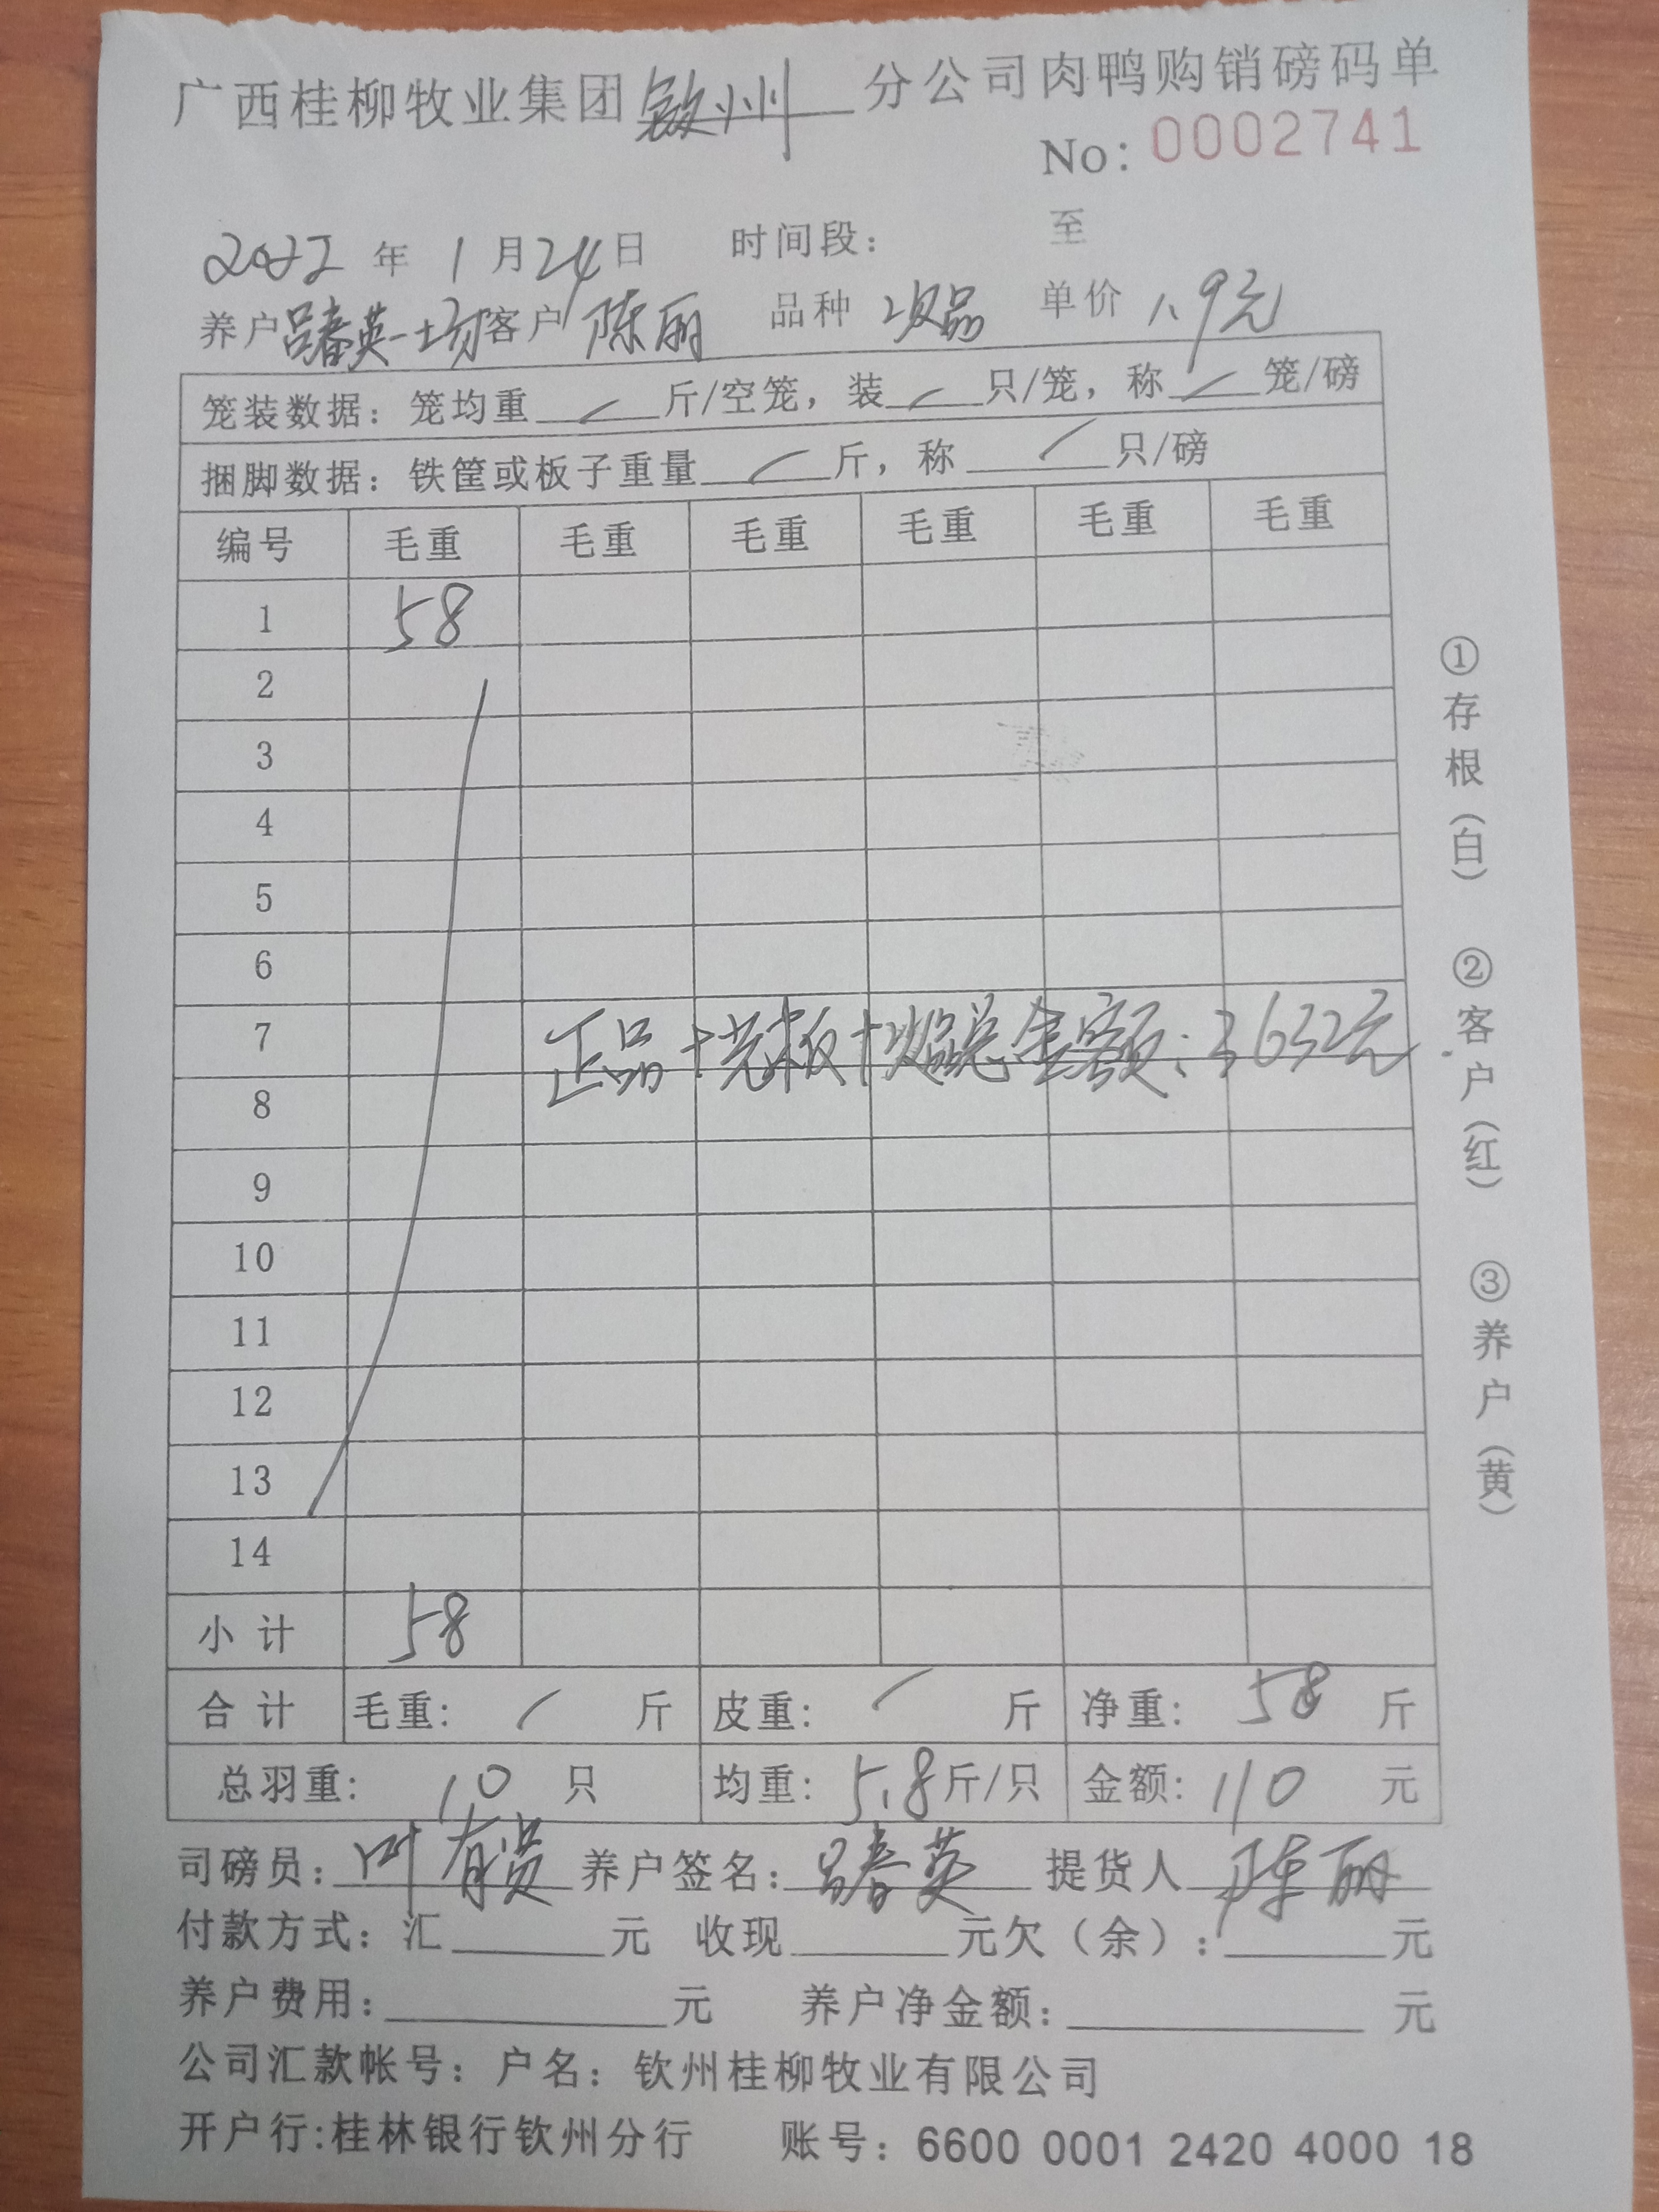 广西桂柳牧业集团钦州分公司肉鸭购销磅码单
No：0002741
2022年1月24日 时间段： 至
养户吕春英一场客户陈丽 品种 次品 单价 1.9元
笼装数据：笼均重/斤/空笼，装/只/笼，称/笼/磅
捆脚数据：铁筐或板子重量/斤，称/只/磅
编号 毛重 毛重 毛重 毛重 毛重 毛重
1 58
2
3
4
5
6
7
正品+光板+次品总金额：3632元
8
9
10
11
12
13
14
小计 58
合计 毛重：/斤 皮重：/斤 净重：58斤
总羽重：10只 均重：5.8斤/只 金额：110元
司磅员：叶有贵 养户签名：吕春英 提货人 陈丽
付款方式：汇____元 收现____元欠（余）：____元
养户费用：____元 养户净金额：____元
公司汇款帐号：户名：钦州桂柳牧业有限公司
开户行:桂林银行钦州分行 账号：6600 0001 2420 4000 18
①存根（白） ②客户（红） ③养户（黄）